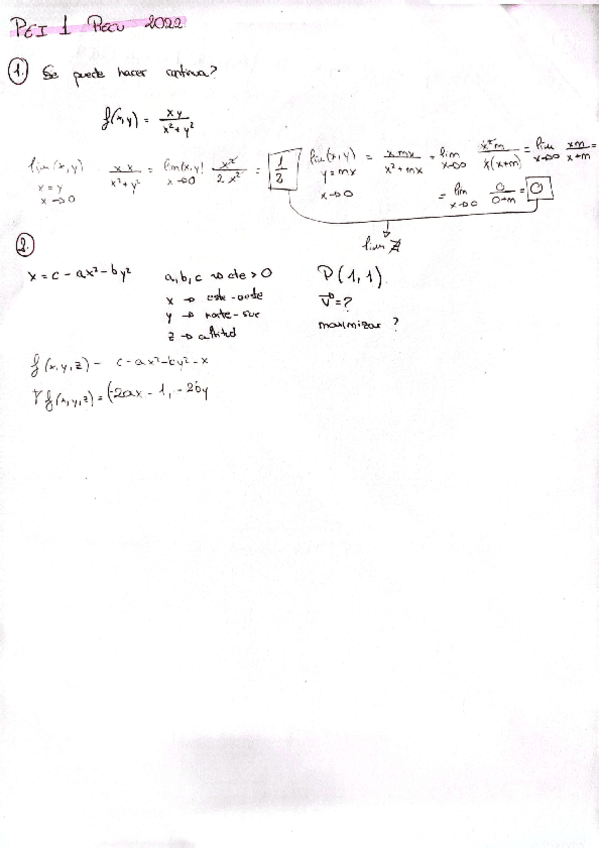 PEI 1 RECU 2022
1. Se puede hacer continua?
f(x,y) = xy / x²+y²
lim(x,y) x=y x→0 x x / x²+y² = lim(x,y) x→0 x² / 2x² = 1/2
lim(x,y) y=mx x→0 = x mx / x²+mx = lim x→0 x²m / x(x+m) = lim x→0 xm / x+m =
= lim x→0 0 / 0+m = 0
lim ∄
2.
x = c - ax² - by² a,b,c → cte > 0 P(1,1)
x → este-oeste v = ?
y → norte-sur maximizar ?
z → altitud
f(x,y,z) - c - ax² - by² - x
∇f(x,y,z) = (-2ax - 1, -2by